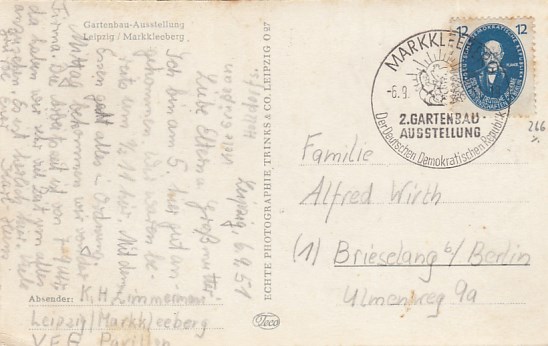 Gartenbau-Ausstellung
Leipzig / Markkleeberg
Leipzig 6.9.51
Liebe Eltern u. Großmutter
Ich bin am 5. hier gut an-
gekommen. Wir waren be-
reits um 11 hier. Mit dem
Essen geht alles in Ordnung.
Mittag bekommen wir von der
Firma. Die Arbeitszeit ist von
da haben wir sehr viel Zeit um alles
anzusehen. Es ist herrlich hier. Viele
Grüße Euer
Absender: K.H Zimmermann
Leipzig/Markkleeberg
VEB Pavillon
ECHTE PHOTOGRAPHIE TRINKS & CO. LEIPZIG O 27
Teco
MARKKLEE
-6.9.
2. GARTENBAU-
AUSSTELLUNG
Der Deutschen Demokratischen Republik
12 12
266
Familie
Alfred Wirth
(1) Brieselang b/Berlin
Ulmenweg 9a